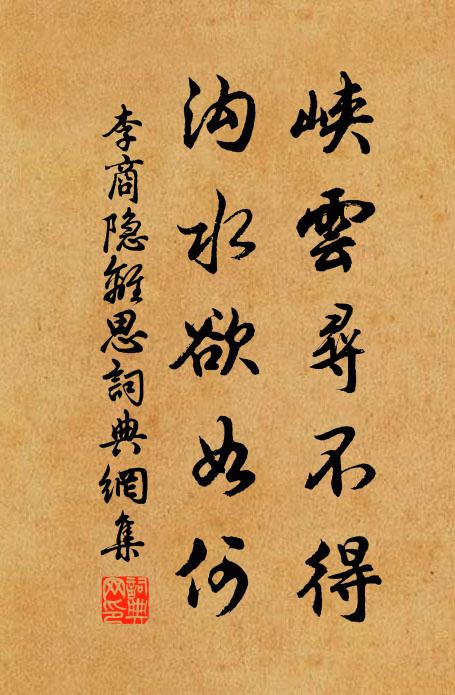 峽雲尋不得
沟水欲如何
李商隐離思詞典網集
詞典网印